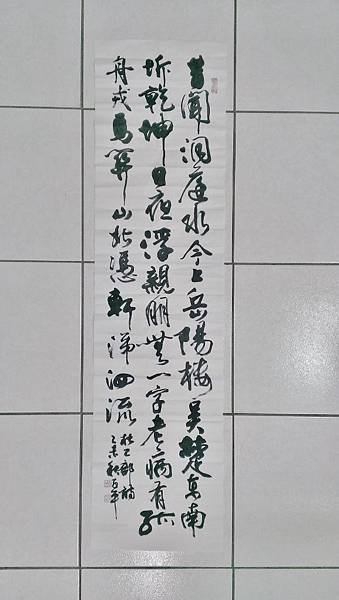 昔聞洞庭水今上岳陽樓吳楚東南
坼乾坤日夜浮親朋無一字老病有孤
舟戎馬關山北憑軒涕泗流
杜工部詩